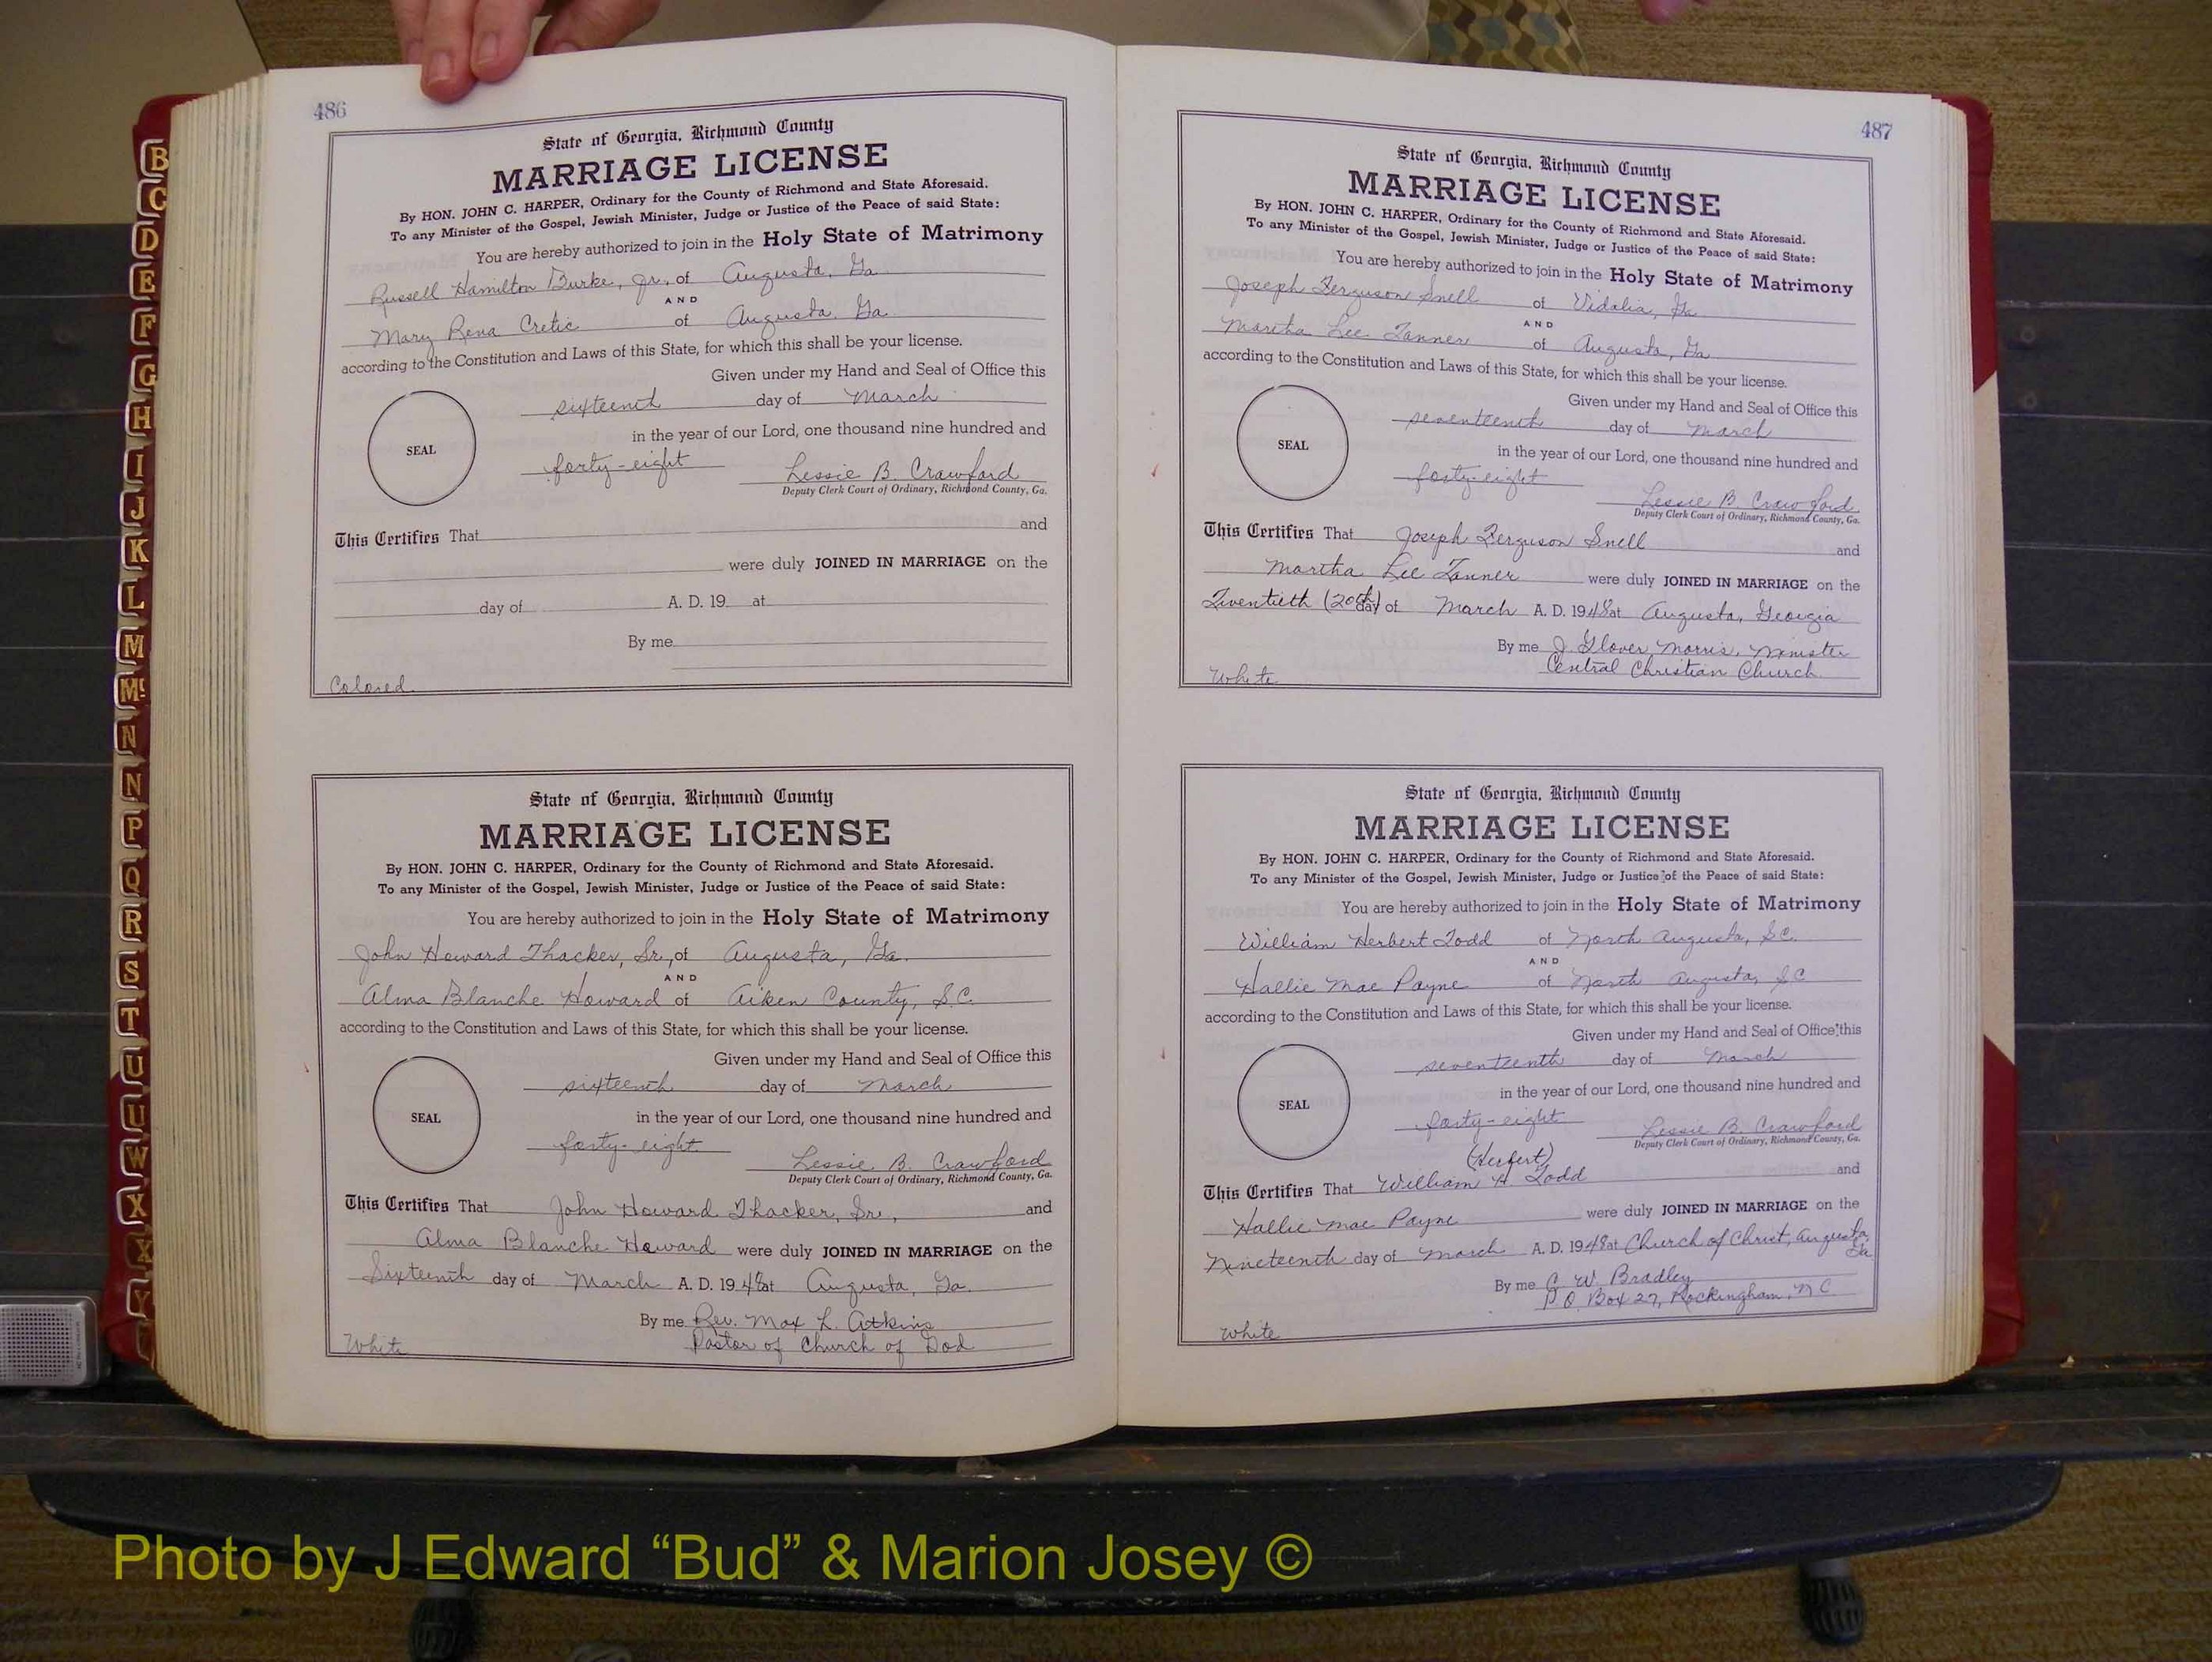 B
C
D
E
F
G
H
I
J
K
L
M
Mc
N
N
P
Q
R
S
T
U
U
W
X
X
Y
486
State of Georgia, Richmond County
MARRIAGE LICENSE
By HON. JOHN C. HARPER, Ordinary for the County of Richmond and State Aforesaid.
To any Minister of the Gospel, Jewish Minister, Judge or Justice of the Peace of said State:
You are hereby authorized to join in the Holy State of Matrimony
Russell Hamilton Burke, Jr. of Augusta, Ga.
AND
Mary Rena Cretic of Augusta, Ga.
according to the Constitution and Laws of this State, for which this shall be your license.
Given under my Hand and Seal of Office this
sixteenth day of March
in the year of our Lord, one thousand nine hundred and
SEAL
forty-eight Lessie B. Crawford
Deputy Clerk Court of Ordinary, Richmond County, Ga.
This Certifies That and
were duly JOINED IN MARRIAGE on the
day of A. D. 19 at
By me
Colored
State of Georgia, Richmond County
MARRIAGE LICENSE
By HON. JOHN C. HARPER, Ordinary for the County of Richmond and State Aforesaid.
To any Minister of the Gospel, Jewish Minister, Judge or Justice of the Peace of said State:
You are hereby authorized to join in the Holy State of Matrimony
John Howard Thacker, Sr., of Augusta, Ga.
AND
Alma Blanche Howard of Aiken County, S.C.
according to the Constitution and Laws of this State, for which this shall be your license.
Given under my Hand and Seal of Office this
sixteenth day of March
in the year of our Lord, one thousand nine hundred and
SEAL
forty-eight Lessie B. Crawford
Deputy Clerk Court of Ordinary, Richmond County, Ga.
This Certifies That John Howard Thacker, Sr., and
Alma Blanche Howard were duly JOINED IN MARRIAGE on the
Sixteenth day of March A. D. 1948 at Augusta, Ga.
By me Rev. Max L. Atkins
Pastor of Church of God
White
487
State of Georgia, Richmond County
MARRIAGE LICENSE
By HON. JOHN C. HARPER, Ordinary for the County of Richmond and State Aforesaid.
To any Minister of the Gospel, Jewish Minister, Judge or Justice of the Peace of said State:
You are hereby authorized to join in the Holy State of Matrimony
Joseph Ferguson Snell of Vidalia, Ga.
AND
Martha Lee Tanner of Augusta, Ga.
according to the Constitution and Laws of this State, for which this shall be your license.
Given under my Hand and Seal of Office this
seventeenth day of March
in the year of our Lord, one thousand nine hundred and
SEAL
forty-eight Lessie B. Crawford
Deputy Clerk Court of Ordinary, Richmond County, Ga.
This Certifies That Joseph Ferguson Snell and
Martha Lee Tanner were duly JOINED IN MARRIAGE on the
Twentieth (20th) day of March A. D. 1948 at Augusta, Georgia
By me J. Glover Morris, Minister
Central Christian Church
White
State of Georgia, Richmond County
MARRIAGE LICENSE
By HON. JOHN C. HARPER, Ordinary for the County of Richmond and State Aforesaid.
To any Minister of the Gospel, Jewish Minister, Judge or Justice of the Peace of said State:
You are hereby authorized to join in the Holy State of Matrimony
William Herbert Todd of North Augusta, S.C.
AND
Hallie Mae Payne of North Augusta, S.C
according to the Constitution and Laws of this State, for which this shall be your license.
Given under my Hand and Seal of Office this
seventeenth day of March
in the year of our Lord, one thousand nine hundred and
SEAL
forty-eight Lessie B. Crawford
Deputy Clerk Court of Ordinary, Richmond County, Ga.
(Herbert)
This Certifies That William H Todd and
Hallie Mae Payne were duly JOINED IN MARRIAGE on the
Nineteenth day of March A. D. 1948 at Church of Christ, Augusta,
Ga
By me C. W. Bradley
P.O. Box 27, Rockingham, N C
White
Photo by J Edward “Bud” & Marion Josey ©